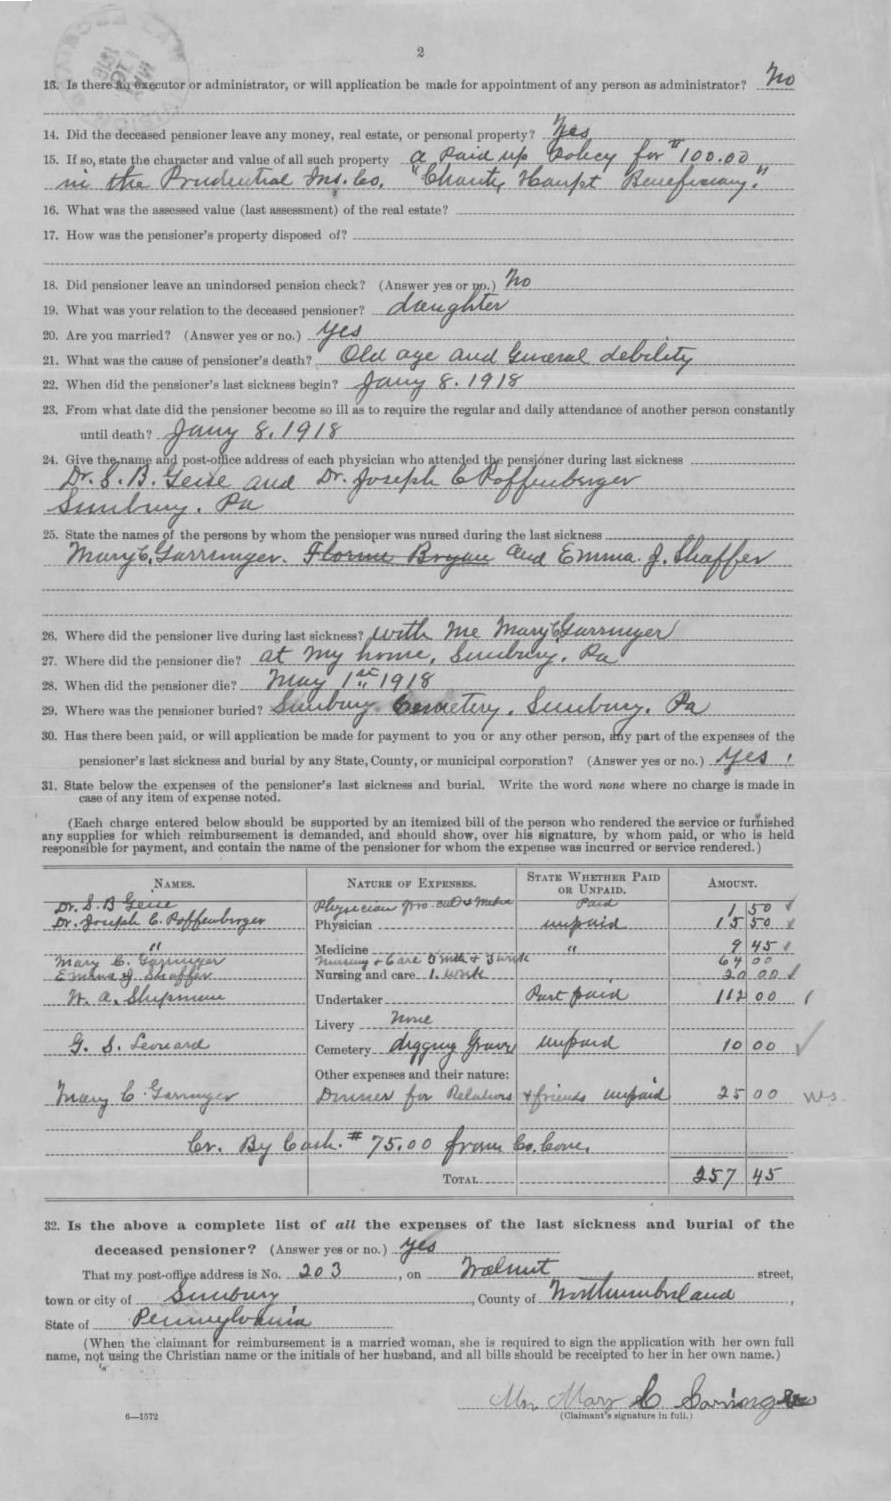 2
13. Is there an executor or administrator, or will application be made for appointment of any person as administrator? No
14. Did the deceased pensioner leave any money, real estate, or personal property? Yes
15. If so, state the character and value of all such property a Paid up Policy for $100.00
in the Prudential Ins. Co. "Charity Haupt Beneficiary."
16. What was the assessed value (last assessment) of the real estate?
17. How was the pensioner's property disposed of?
18. Did pensioner leave an unindorsed pension check? (Answer yes or no.) No
19. What was your relation to the deceased pensioner? daughter
20. Are you married? (Answer yes or no.) Yes
21. What was the cause of pensioner's death? Old age and General debility
22. When did the pensioner's last sickness begin? Jany 8. 1918
23. From what date did the pensioner become so ill as to require the regular and daily attendance of another person constantly
until death? Jany 8. 1918
24. Give the name and post-office address of each physician who attended the pensioner during last sickness
Dr. S. B. Geise and Dr. Joseph C Roffenberger
Sunbury. Pa
25. State the names of the persons by whom the pensioner was nursed during the last sickness
Mary C. Garringer. Florine Bryan and Emma. J. Shaffer
26. Where did the pensioner live during last sickness? with me Mary C Garringer
27. Where did the pensioner die? at my home, Sunbury. Pa
28. When did the pensioner die? May 1st 1918
29. Where was the pensioner buried? Sunbury Cemetery. Sunbury. Pa
30. Has there been paid, or will application be made for payment to you or any other person, any part of the expenses of the
pensioner's last sickness and burial by any State, County, or municipal corporation? (Answer yes or no.) Yes !
31. State below the expenses of the pensioner's last sickness and burial. Write the word none where no charge is made in
case of any item of expense noted.
(Each charge entered below should be supported by an itemized bill of the person who rendered the service or furnished
any supplies for which reimbursement is demanded, and should show, over his signature, by whom paid, or who is held
responsible for payment, and contain the name of the pensioner for whom the expense was incurred or service rendered.)
NAMES. NATURE OF EXPENSES. STATE WHETHER PAID OR UNPAID. AMOUNT.
Dr. S. B Geise Physician Paid 1 50
Dr. Joseph C. Roffenberger Physician unpaid 15 50
" Medicine " 9 45
Mary C. Garringer Nursing & Care 64 00
Emma J Shaffer Nursing and care 1. week 20 00
W. A. Shipman Undertaker Part paid 112 00
Livery None
G. S. Leonard Cemetery digging Grave unpaid 10 00
Other expenses and their nature:
Mary C. Garringer Dinner for Relations & friends unpaid 25 00
Cr. By Cash. $75.00 from Co. Com.
TOTAL 257 45
32. Is the above a complete list of all the expenses of the last sickness and burial of the
deceased pensioner? (Answer yes or no.) Yes
That my post-office address is No. 203, on Walnut street,
town or city of Sunbury, County of Northumberland,
State of Pennsylvania
(When the claimant for reimbursement is a married woman, she is required to sign the application with her own full
name, not using the Christian name or the initials of her husband, and all bills should be receipted to her in her own name.)
Mrs. Mary C. Garringer
(Claimant's signature in full.)
6—1572